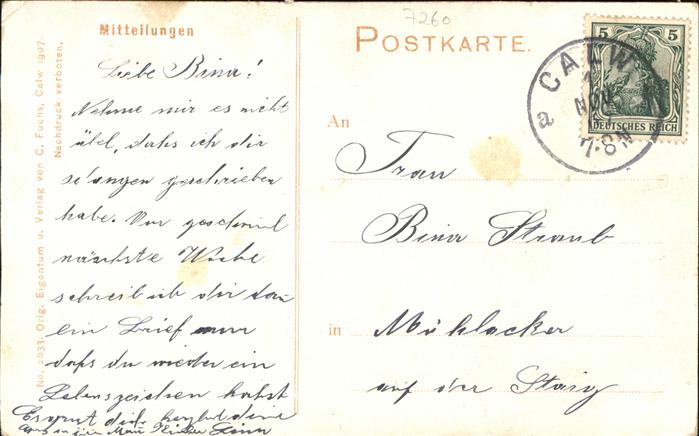 7260
Mitteilungen
POSTKARTE.
No. 2033. Orig. Eigentum u. Verlag von C. Fuchs, Calw 1907.
Nachdruck verboten.
Liebe Bina!
Nehme mir es nicht
übel, dahs ich dir
so langen geschrieben
habe.
nächste Woche
schreib ich dir dan
ein Brief nur
dahs du wieder ein
Lebenszeichen habst
Es grüst dich herzl. deine
DEUTSCHES REICH
5 5
CALW
NOV
7-8N
a
An
Frau
Bina Straub
in Mühlacker
auf der Staig